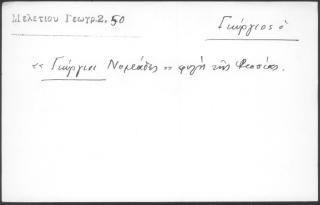 Μελετίου Γεωγρ.2, 50
Γιώργιος ὁ
<< Γιώργιοι Νομάδες >> φυλὴ τῆς Περσίας.